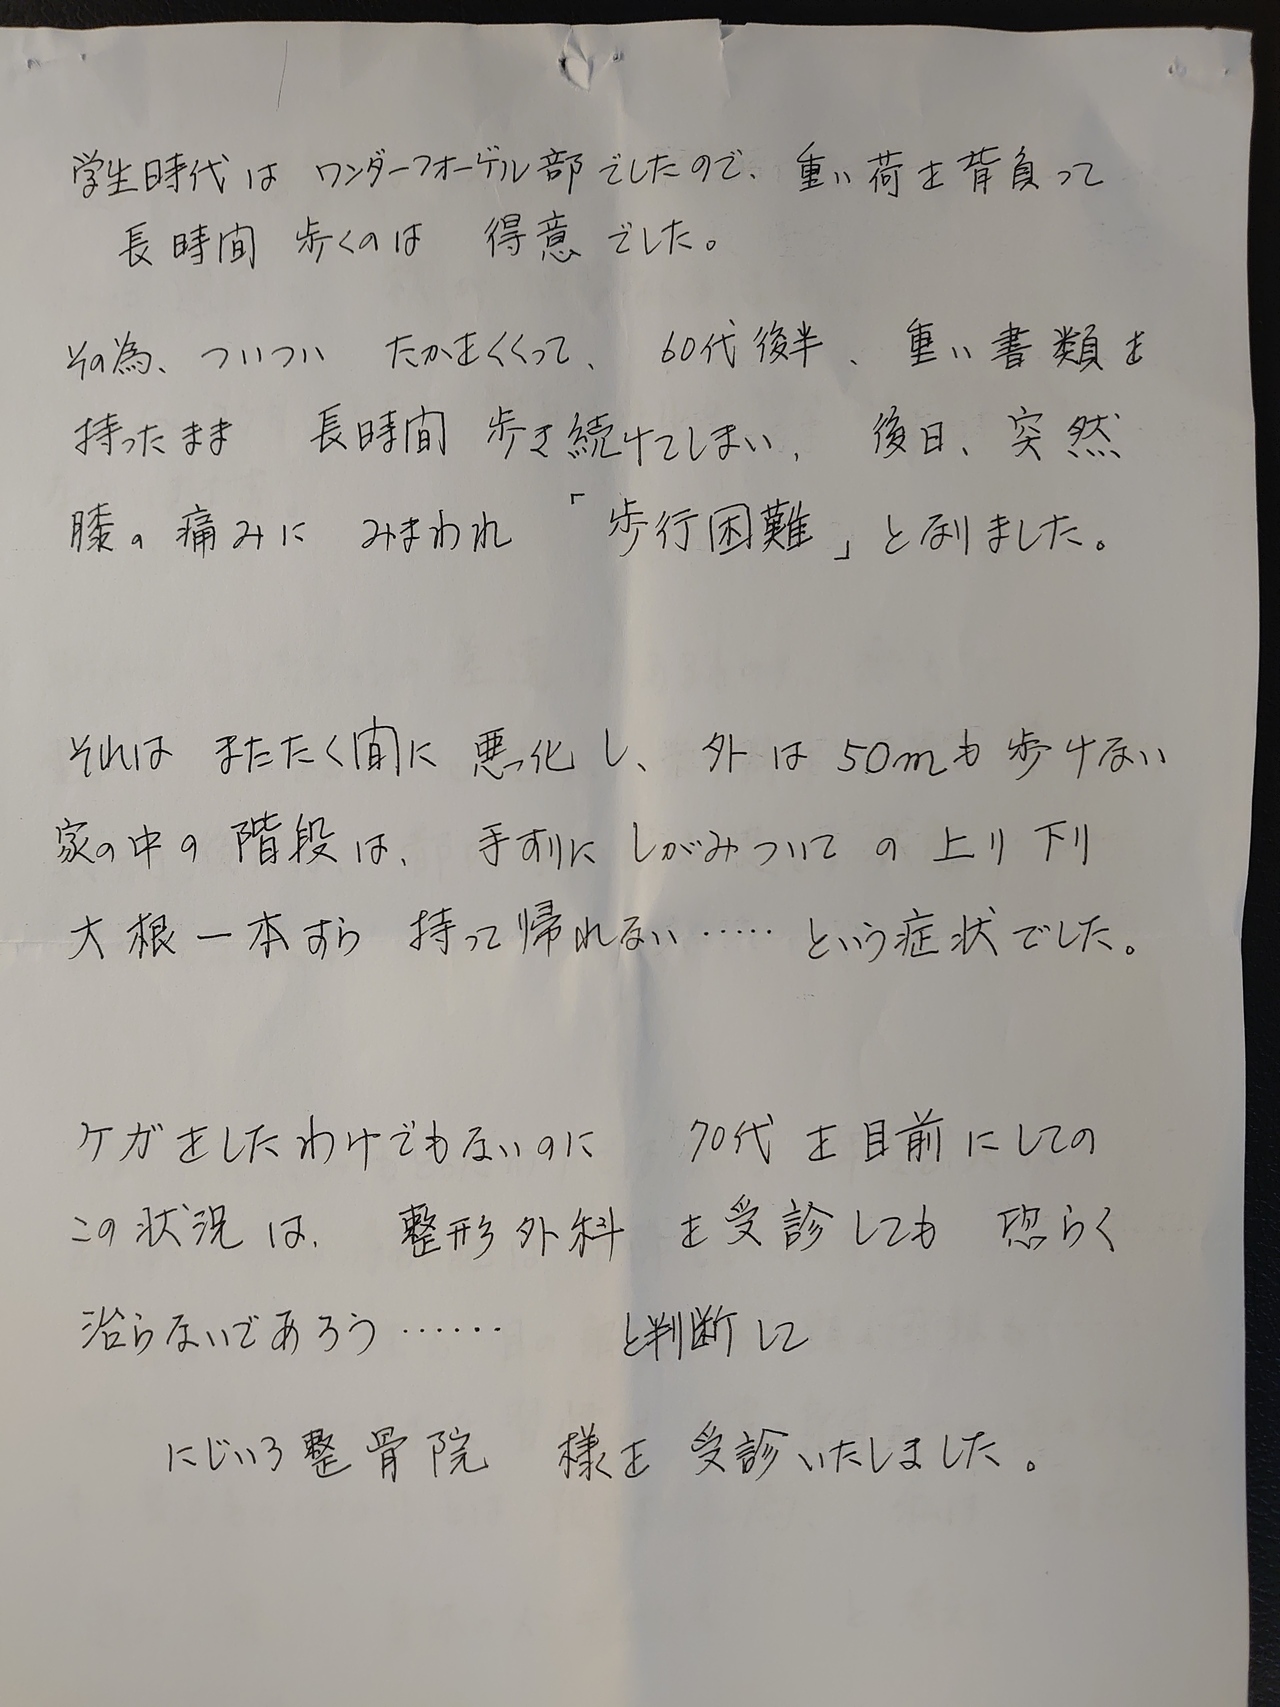 学生時代は ワンダーフォーゲル部でしたので、重い荷を背負って
長時間 歩くのは 得意でした。
その為、ついつい たかをくくって、 60代後半、重い書類を
持ったまま 長時間 歩き続けてしまい、 後日、突然
膝の痛みに みまわれ 「歩行困難」となりました。
それは またたく間に 悪化し、 外は 50mも歩けない
家の中の階段は、 手すりに しがみついて の 上り下り
大根一本すら 持って帰れない‥‥‥ という症状でした。
ケガをしたわけでもないのに 70代を目前にしての
この状況は、 整形外科 を受診しても 恐らく
治らないであろう‥‥‥ と判断して
にじいろ整骨院 様を 受診いたしました。